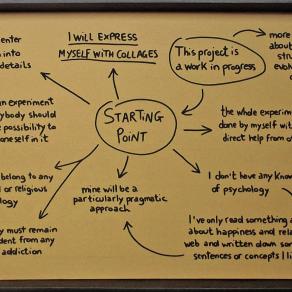 enter
into
details
I WILL EXPRESS
MYSELF WITH COLLAGES
This project is
a work in progress
more
about
stru
evol
o
an experiment
ybody should
e possibility to
oneself in it
STARTING
POINT
the whole experim
done by myself wit
direct help from o
belong to any
l or religious
ology
mine will be a
particularly pragmatic
approach
I don't have any know
of psychology
y must remain
dent from any
addiction
I've only read something a
about happiness and rela
web and written down som
sentences or concepts I li